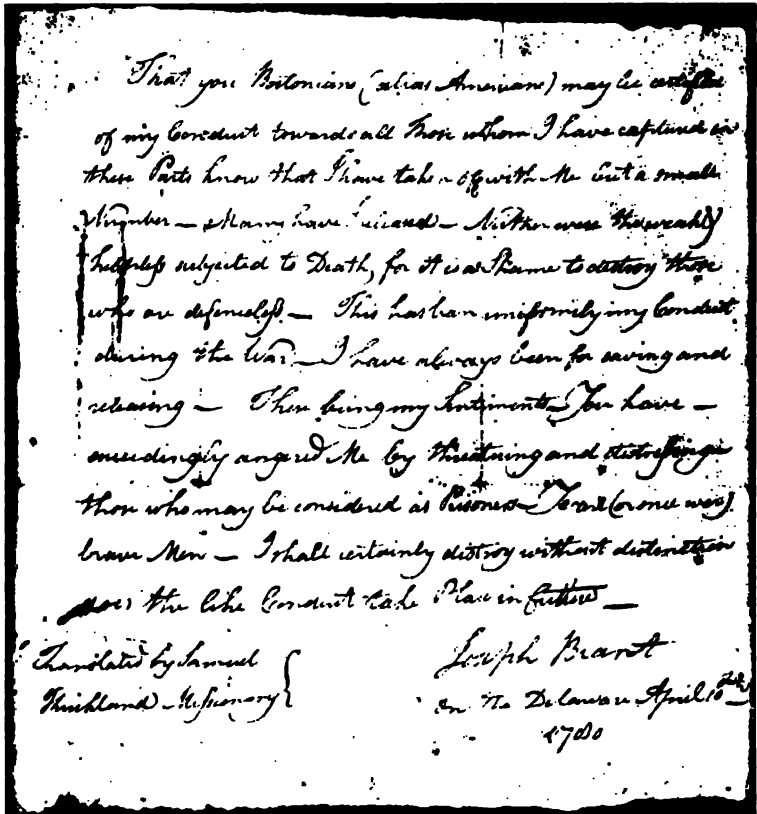 That you Bostonians (alias Americans) may be certified
of my Conduct towards all those whom I have captured in
these Parts know that I have taken off with Me but a small
Number — Many have I released — Neither were the weak &
helpless subjected to Death, for it is a Shame to destroy those
who are defenceless — This has been uniformly my Conduct
during the War — I have always been for saving and
releasing — These being my Sentiments — You have —
exceedingly angered Me by threatning and distressing
those who may be considered as Prisoners — Ye are (or once were)
brave Men — I shall certainly destroy without distinction
does the like Conduct take Place in future —
Joseph Brant
Translated by Samuel
Kirkland Missionary
On the Delaware April 10th
1780